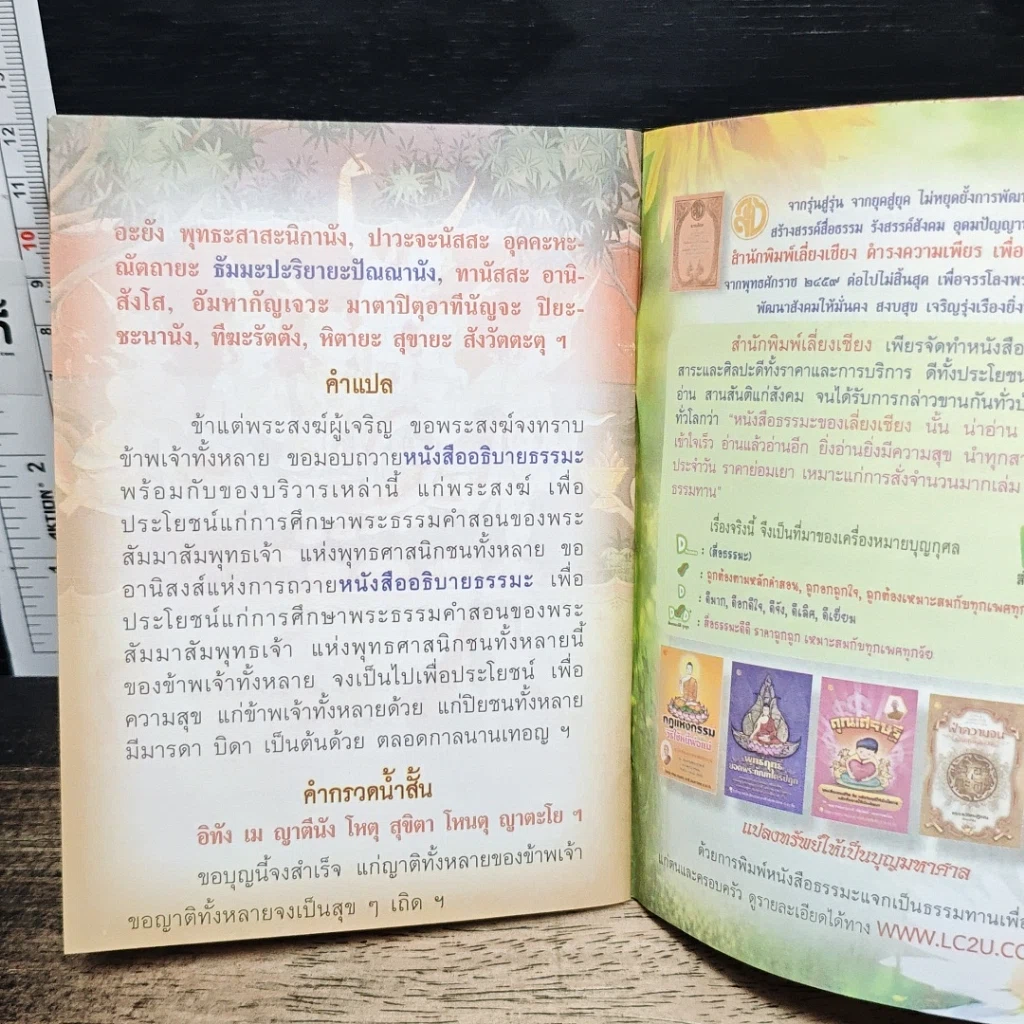 อะยัง พุทธะสาสะนิกานัง, ปาวะจะนัสสะ อุคคะหะ-
ณัตถายะ ธัมมะปะริยายะปัณณานัง, ทานัสสะ อานิ-
สังโส, อัมหากัญเจวะ มาตาปิตุอาทีนัญจะ ปิยะ-
ชะนานัง, ทีฆะรัตตัง, หิตายะ สุขายะ สังวัตตะตุ ฯ
คำแปล
ข้าแต่พระสงฆ์ผู้เจริญ ขอพระสงฆ์จงทราบ
ข้าพเจ้าทั้งหลาย ขอมอบถวายหนังสืออธิบายธรรมะ
พร้อมกับของบริวารเหล่านี้ แก่พระสงฆ์ เพื่อ
ประโยชน์แก่การศึกษาพระธรรมคำสอนของพระ
สัมมาสัมพุทธเจ้า แห่งพุทธศาสนิกชนทั้งหลาย ขอ
อานิสงส์แห่งการถวายหนังสืออธิบายธรรมะ เพื่อ
ประโยชน์แก่การศึกษาพระธรรมคำสอนของพระ
สัมมาสัมพุทธเจ้า แห่งพุทธศาสนิกชนทั้งหลายนี้
ของข้าพเจ้าทั้งหลาย จงเป็นไปเพื่อประโยชน์ เพื่อ
ความสุข แก่ข้าพเจ้าทั้งหลายด้วย แก่ปิยชนทั้งหลาย
มีมารดา บิดา เป็นต้นด้วย ตลอดกาลนานเทอญ ฯ
คำกรวดน้ำสั้น
อิทัง เม ญาตีนัง โหตุ สุขิตา โหนตุ ญาตะโย ฯ
ขอบุญนี้จงสำเร็จ แก่ญาติทั้งหลายของข้าพเจ้า
ขอญาติทั้งหลายจงเป็นสุข ๆ เถิด ฯ
จากรุ่นสู่รุ่น จากยุคสู่ยุค ไม่หยุดยั้งการพัฒ
สร้างสรรค์สื่อธรรม รังสรรค์สังคม อุดมปัญญา
สำนักพิมพ์เลี่ยงเชียง ดำรงความเพียร เพื่อ
จากพุทธศักราช ๒๔๕๙ ต่อไปไม่สิ้นสุด เพื่อจรรโลงพร
พัฒนาสังคมให้มั่นคง สงบสุข เจริญรุ่งเรืองยิ่ง
สำนักพิมพ์เลี่ยงเชียง เพียรจัดทำหนังสือ
สาระและศิลปะดีทั้งราคาและการบริการ ดีทั้งประโยชน
อ่าน สานสันติแก่สังคม จนได้รับการกล่าวขานกันทั่วบ
ทั่วโลกว่า "หนังสือธรรมะของเลี่ยงเชียง นั้น น่าอ่าน
เข้าใจเร็ว อ่านแล้วอ่านอีก ยิ่งอ่านยิ่งมีความสุข นำทุกสา
ประจำวัน ราคาย่อมเยา เหมาะแก่การสั่งจำนวนมากเล่ม
ธรรมทาน"
เรื่องจริงนี้ จึงเป็นที่มาของเครื่องหมายบุญกุศล
D : (สื่อธรรมะ)
: ถูกต้องตามหลักคำสอน, ถูกอกถูกใจ, ถูกต้องเหมาะสมกับทุกเพศทุก
D : ดีมาก, ดีอกดีใจ, ดีจัง, ดีเลิศ, ดีเยี่ยม
: สื่อธรรมะดีดี ราคาถูกถูก เหมาะสมกับทุกเพศทุกวัย
กฎแห่งกรรม
พุทธคุณ
คุณแห่งศีล ๕
ฟ้าความฝัน
แปลงทรัพย์ให้เป็นบุญมหาศาล
ด้วยการพิมพ์หนังสือธรรมะแจกเป็นธรรมทานเพื่
แก่ตนและครอบครัว ดูรายละเอียดได้ทาง WWW.LC2U.CO
12
11
10
9
8
2
1
4KTION